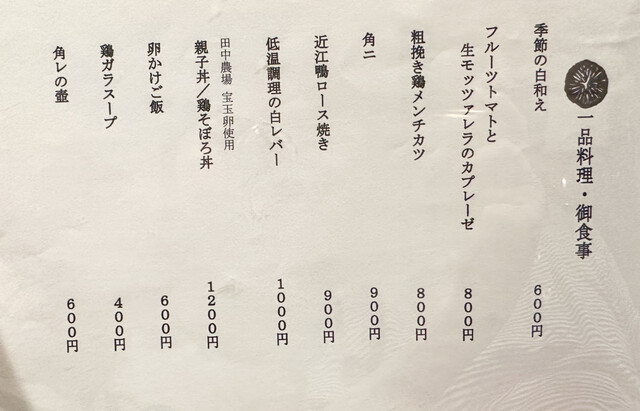 一品料理・御食事
季節の白和え
600円
フルーツトマトと
生モッツァレラのカプレーゼ
800円
粗挽き鶏メンチカツ
800円
角ニ
900円
近江鴨ロース焼き
900円
低温調理の白レバー
1000円
田中農場 宝玉卵使用
親子丼／鶏そぼろ丼
1200円
卵かけご飯
600円
鶏ガラスープ
400円
角レの壺
600円